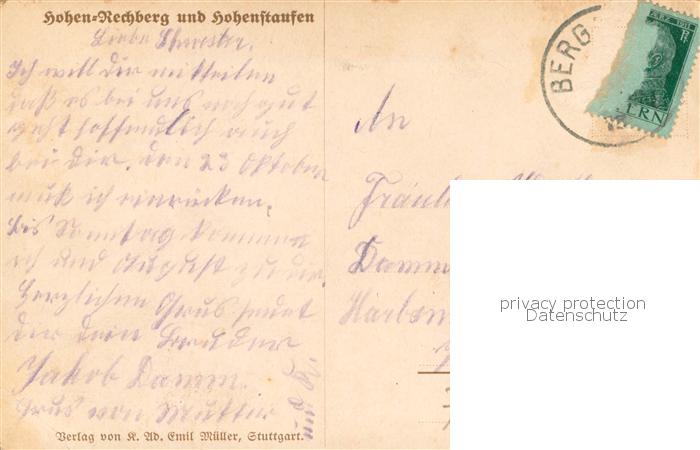 Hohen-Rechberg und Hohenstaufen
Liebe Schwester.
Ich will dir mitteilen
daß es bei uns noch gut
geht hoffendlich auch
bei dir. den 23 Oktober
muß ich einrücken.
bis Sonntag kommen
ich und August zu dir.
Herzlichen Grus sendet
der dein Bruder
Jakob Damm.
Grus von Mutter
und
Verlag von K. Ad. Emil Müller, Stuttgart.
BERG
An
Damm
privacy protection
Datenschutz